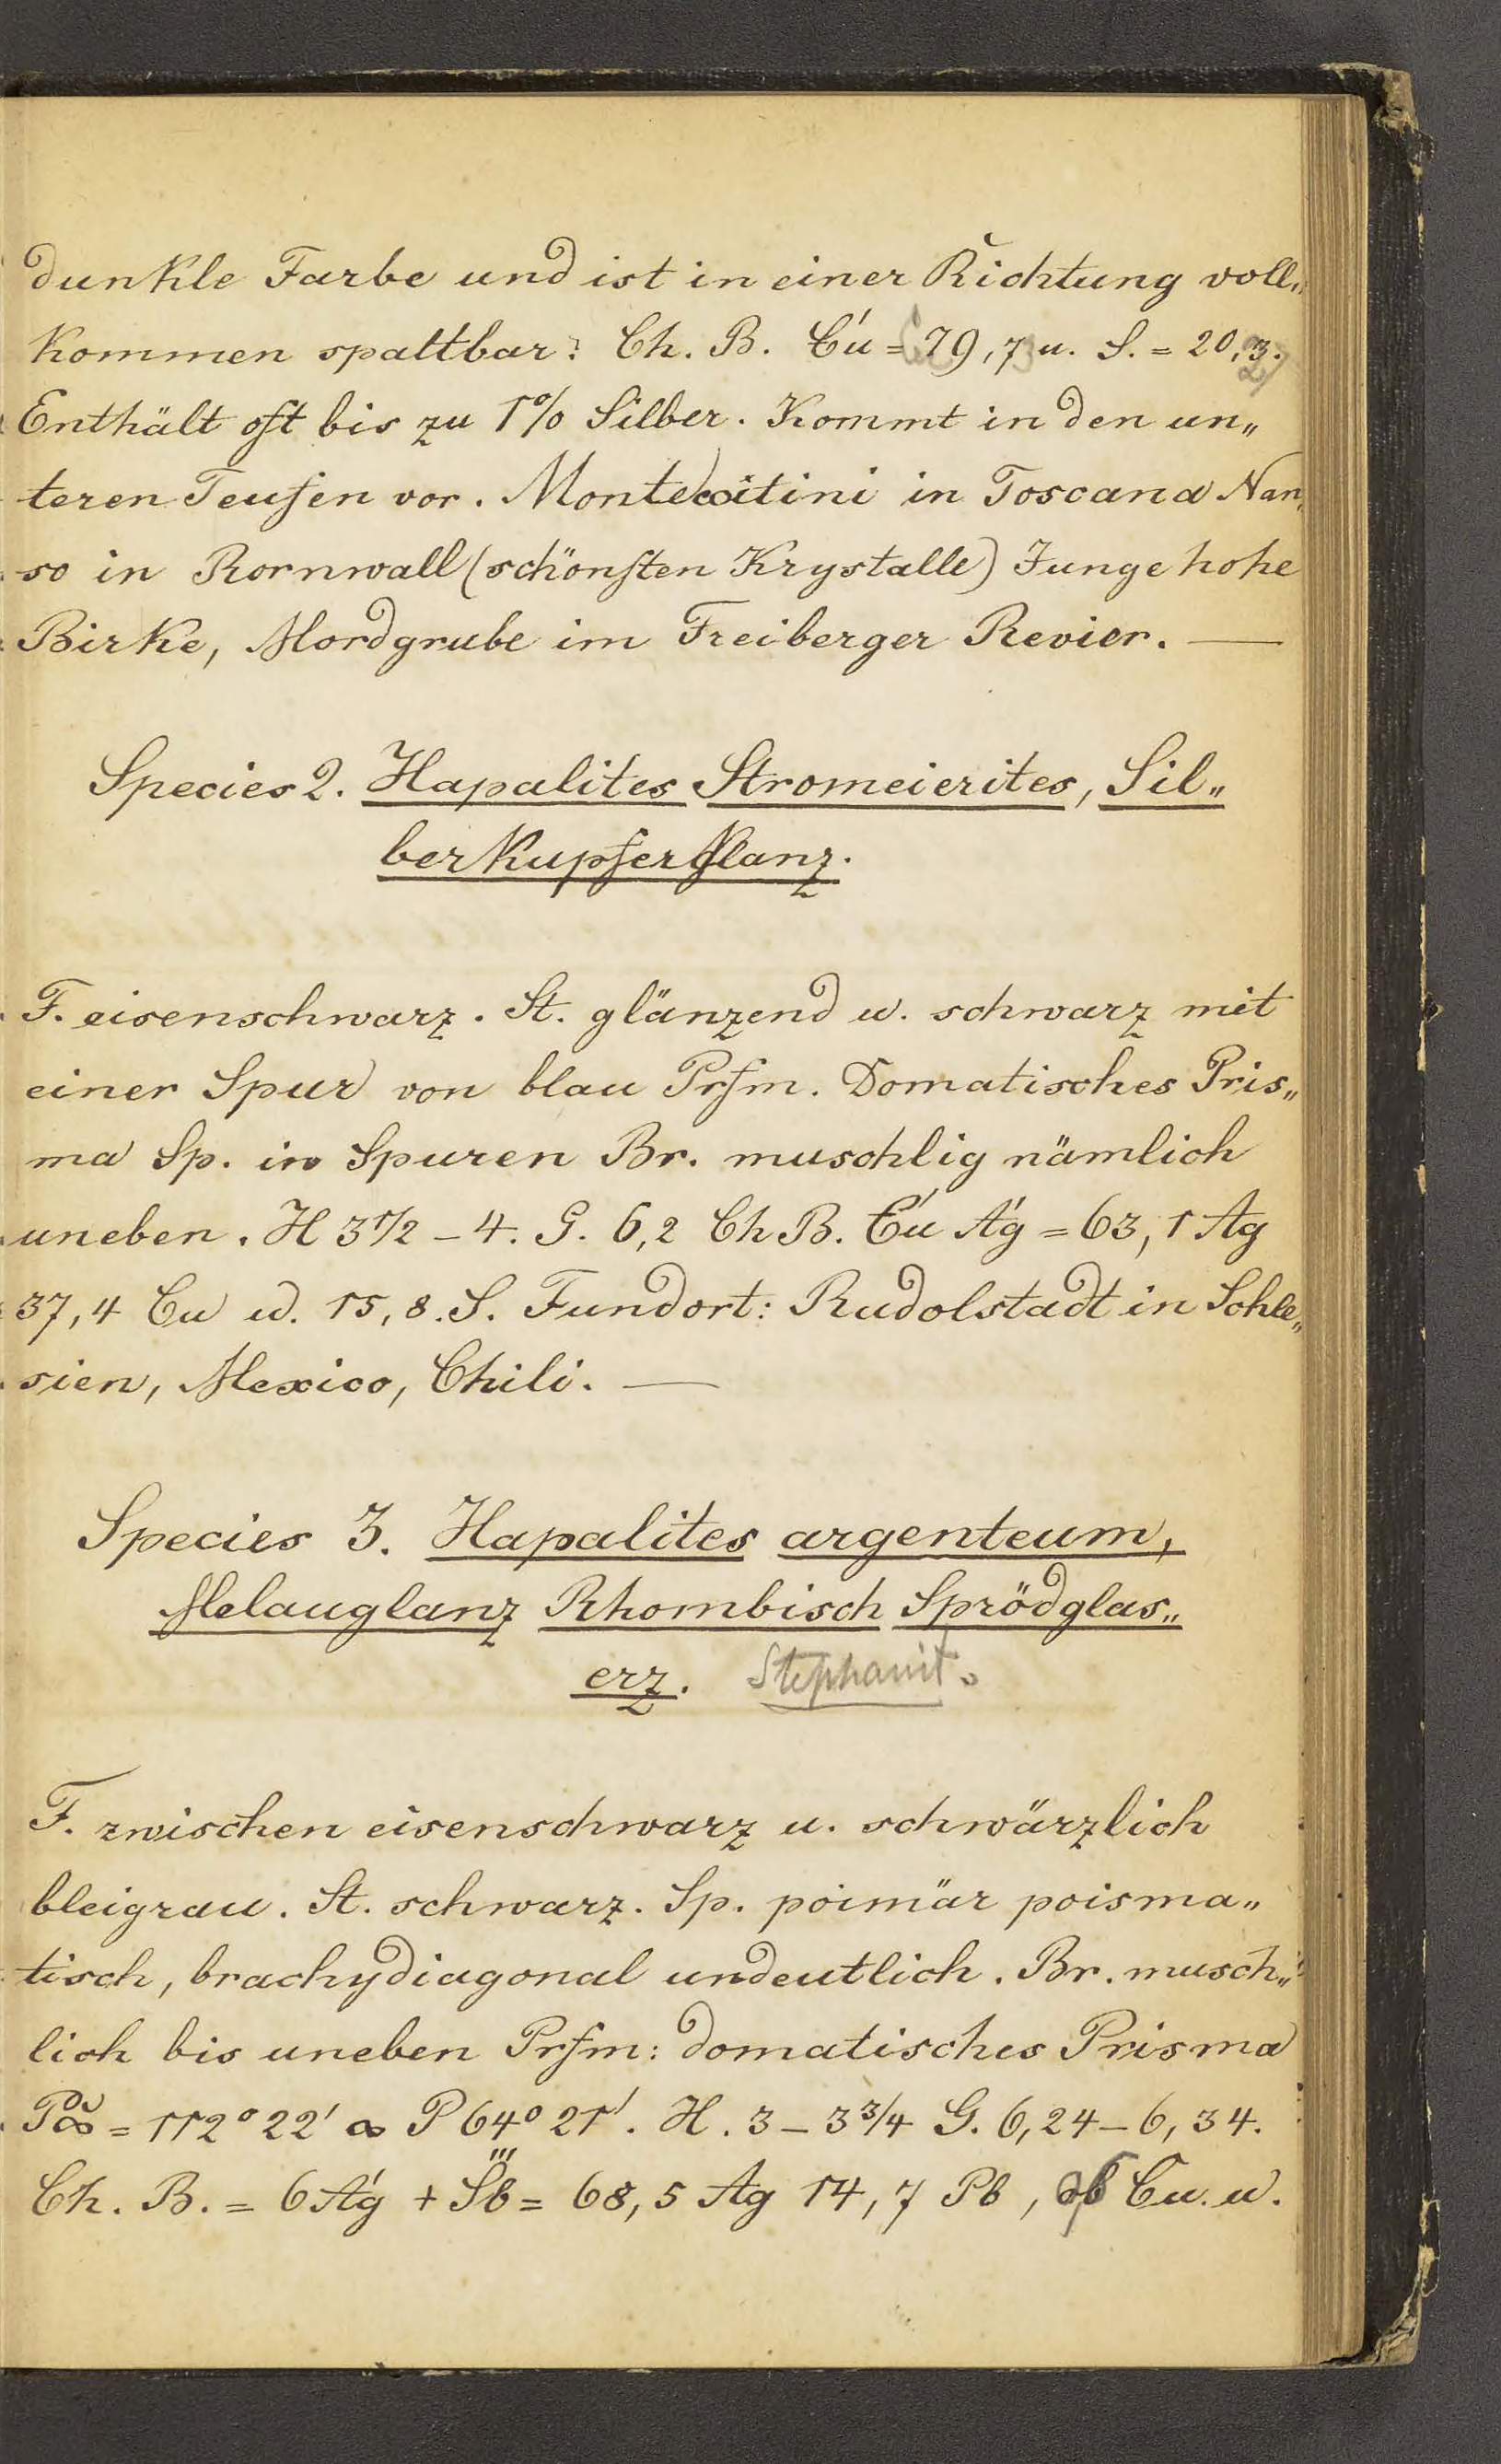 dunkle Farbe und ist in einer Richtung voll„
kommen spaltbar: Ch. B. Cú = 79,7 u. S. = 20,3.
Enthält oft bis zu 1% Silber. Kommt in den un„
teren Teufen vor. Montecatini in Toscana Nan„
so in Kornwall (schönsten Krystalle) Junge hohe
Birke, Mordgrube im Freiberger Revier. —
Species 2. Hapalites Stromeierites, Sil„
berkupferglanz.
F. eisenschwarz. St. glänzend u. schwarz mit
einer Spur von blau Prfm. Domatisches Pris„
ma Sp. in Spuren Br. muschlig nämlich
uneben. H 3 1/2 – 4. G. 6,2 Ch B. Cú Aǵ = 63,1 Ag
37,4 Cu u. 15,8. S. Fundort: Rudolstadt in Schle„
sien, Mexico, Chili. —
Species 3. Hapalites argenteum,
Melauglanz Rhombisch Sprödglas„
erz. Stephanit.
F. zwischen eisenschwarz u. schwärzlich
bleigrau. St. schwarz. Sp. poimär poisma„
tisch, brachydiagonal undeutlich. Br. musch„
lich bis uneben Prfm: domatisches Prisma
P̆∞ = 112° 22' ∞ P 64° 21'. H. 3 – 3 3/4 G. 6,24 – 6,34.
Ch. B. = 6 Aǵ + S̋b = 68,5 Ag 14,7 Pb, Cu. u.